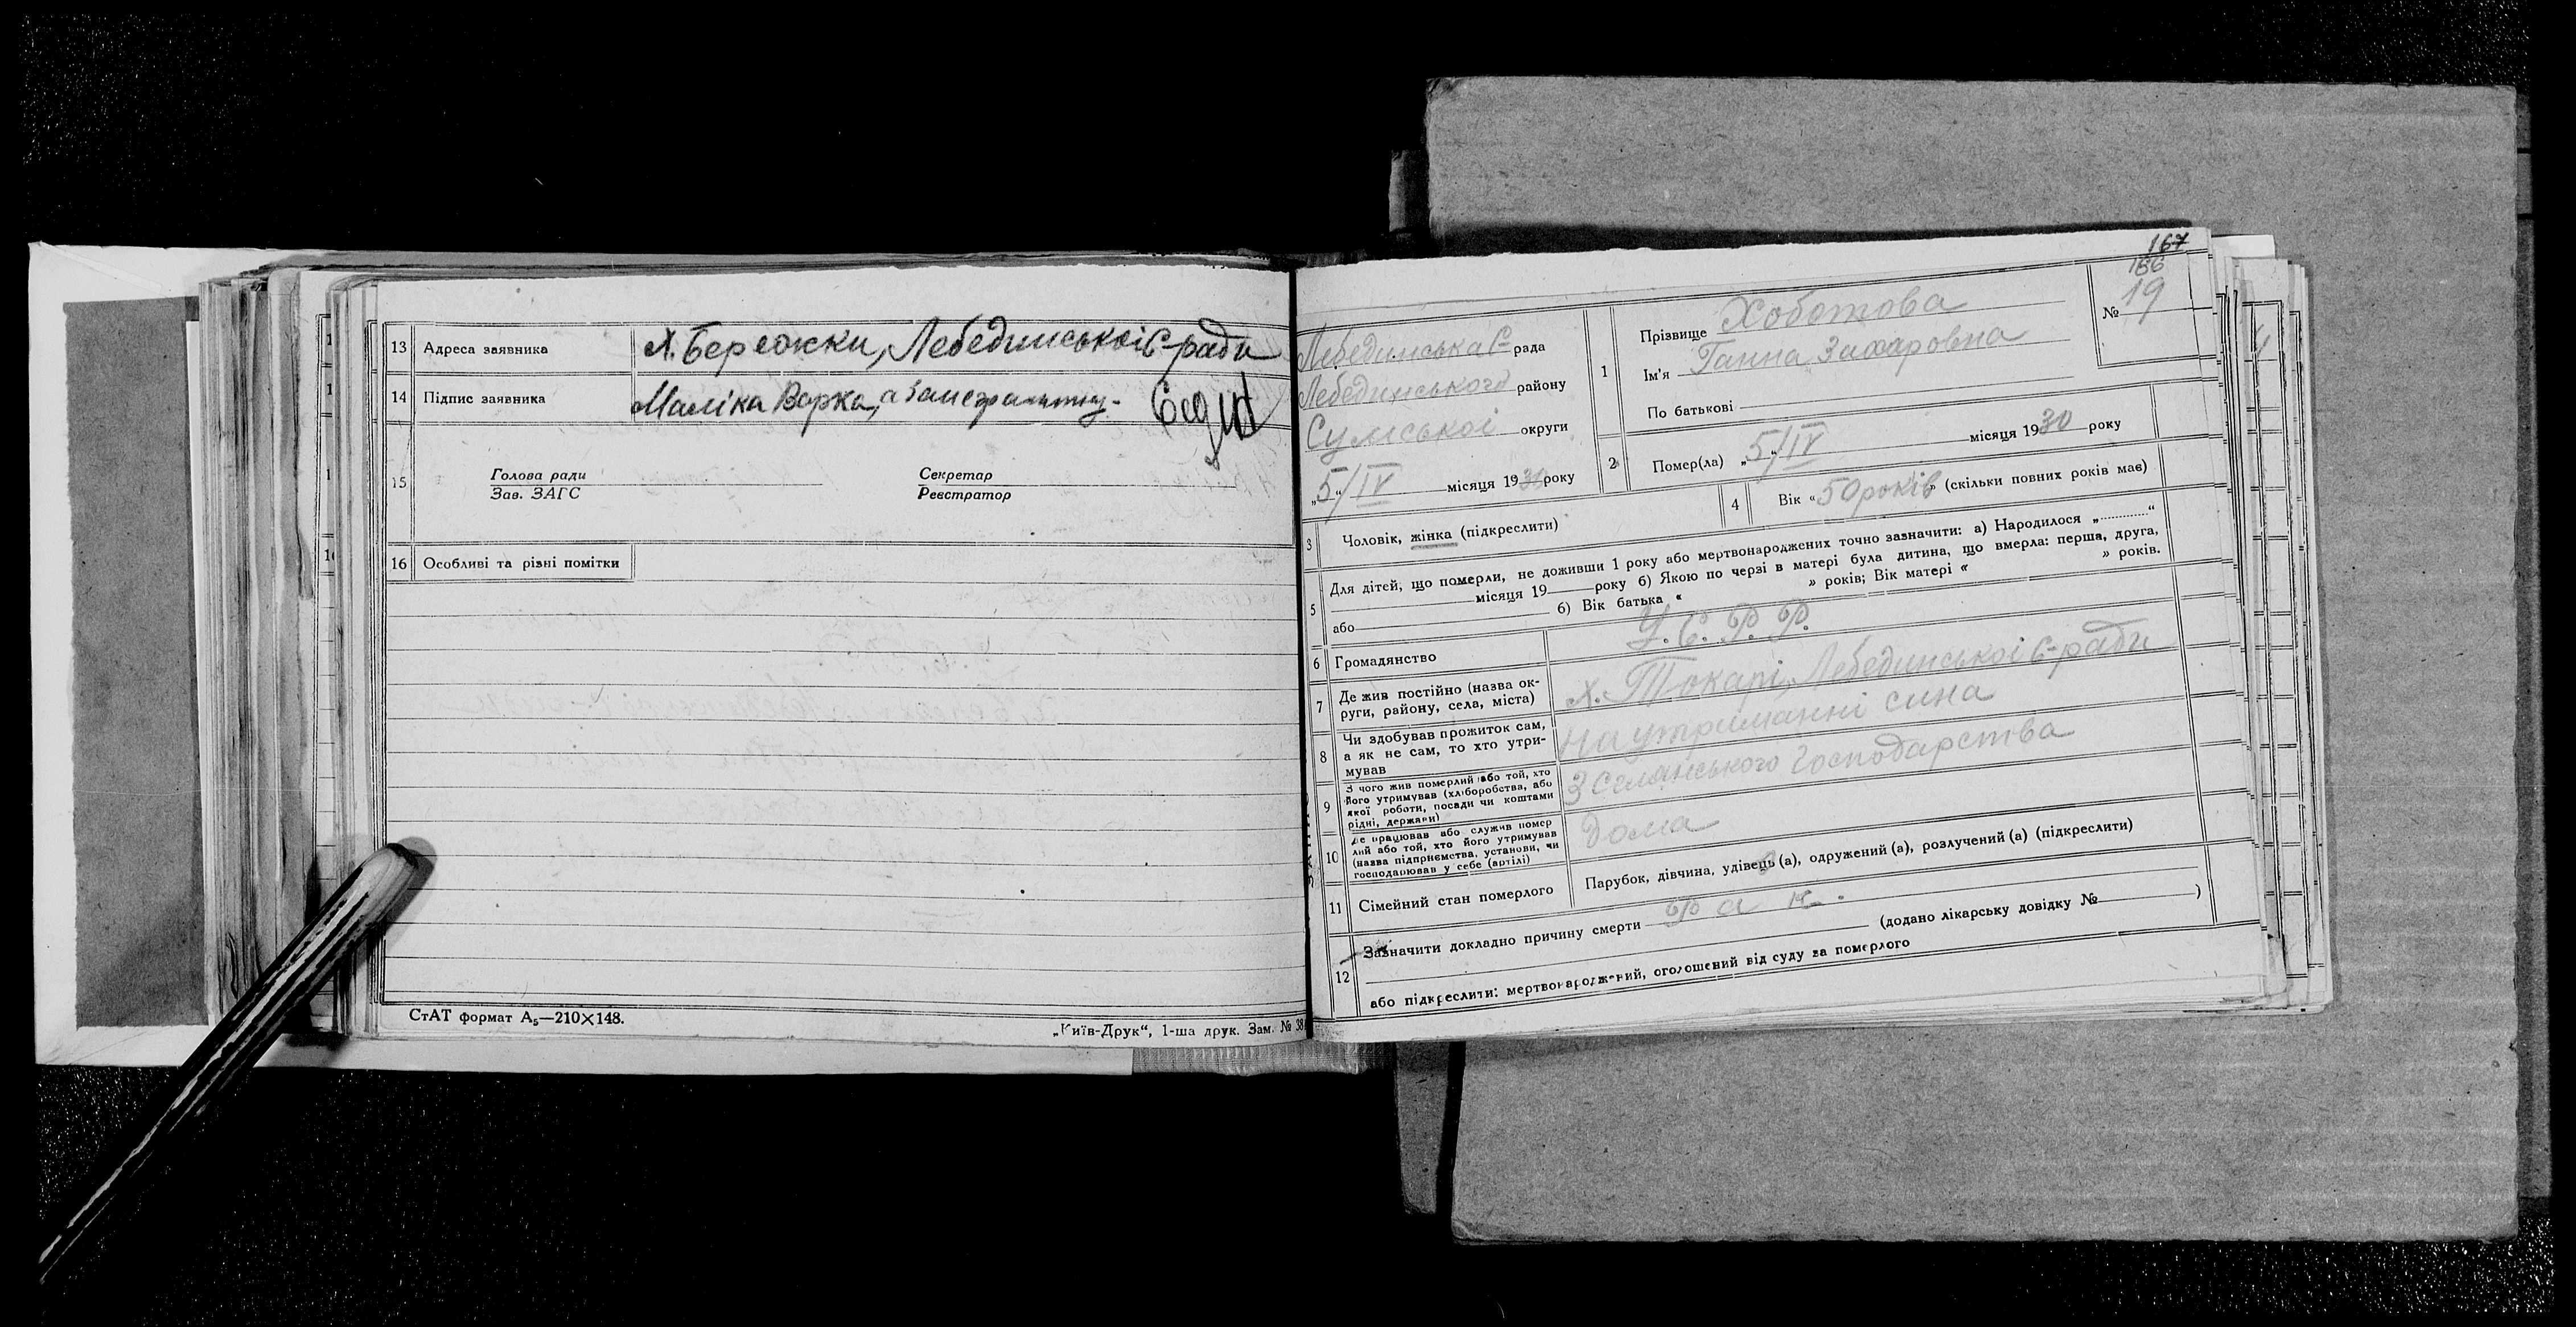 13 Адреса заявника х. Бережки, Лебединської С-ради
14 Підпис заявника Маліка Варка, а
15 Голова ради Секретар
Зав. ЗАГС Реєстратор
16 Особливі та різні помітки
СтАТ формат А₅—210×148.
„Київ-Друк“, 1-ша друк. Зам. № 38
167
166
№ 19
Лебединська С- рада
Лебединського району
Сумської округи
„5“/IV місяця 1930 року
1 Прізвище Хоботова
Ім'я Ганна Захаровна
По батькові
2 Помер(ла) „5“/IV місяця 1930 року
3 Чоловік, жінка (підкреслити)
4 Вік «50 років» (скільки повних років має)
5 Для дітей, що померли, не доживши 1 року або мертвонароджених точно зазначити: а) Народилося „............“
місяця 19 року б) Якою по черзі в матері була дитина, що вмерла: перша, друга,
або б) Вік батька « » років; Вік матері « » років.
6 Громадянство У. С. Р. Р.
7 Де жив постійно (назва ок-
руги, району, села, міста) х. Токарі, Лебединської С-ради
8 Чи здобував прожиток сам,
а як не сам, то хто утри-
мував На утриманні сина
9 З чого жив померлий або той, хто
його утримував (хліборобства, або
якої роботи, посади чи коштами
рідні, держави) З Селянського господарства
10 Де працював або служив помер
лий або той, хто його утримував
(назва підприємства, установи, чи
господарював у себе (артілі) Дома
11 Сімейний стан померлого Парубок, дівчина, удівець (а), одружений (а), розлучений (а) (підкреслити)
12 Зазначити докладно причину смерти Рак.
(додано лікарську довідку № )
або підкреслити: мертвонароджений, оголошений від суду за померлого